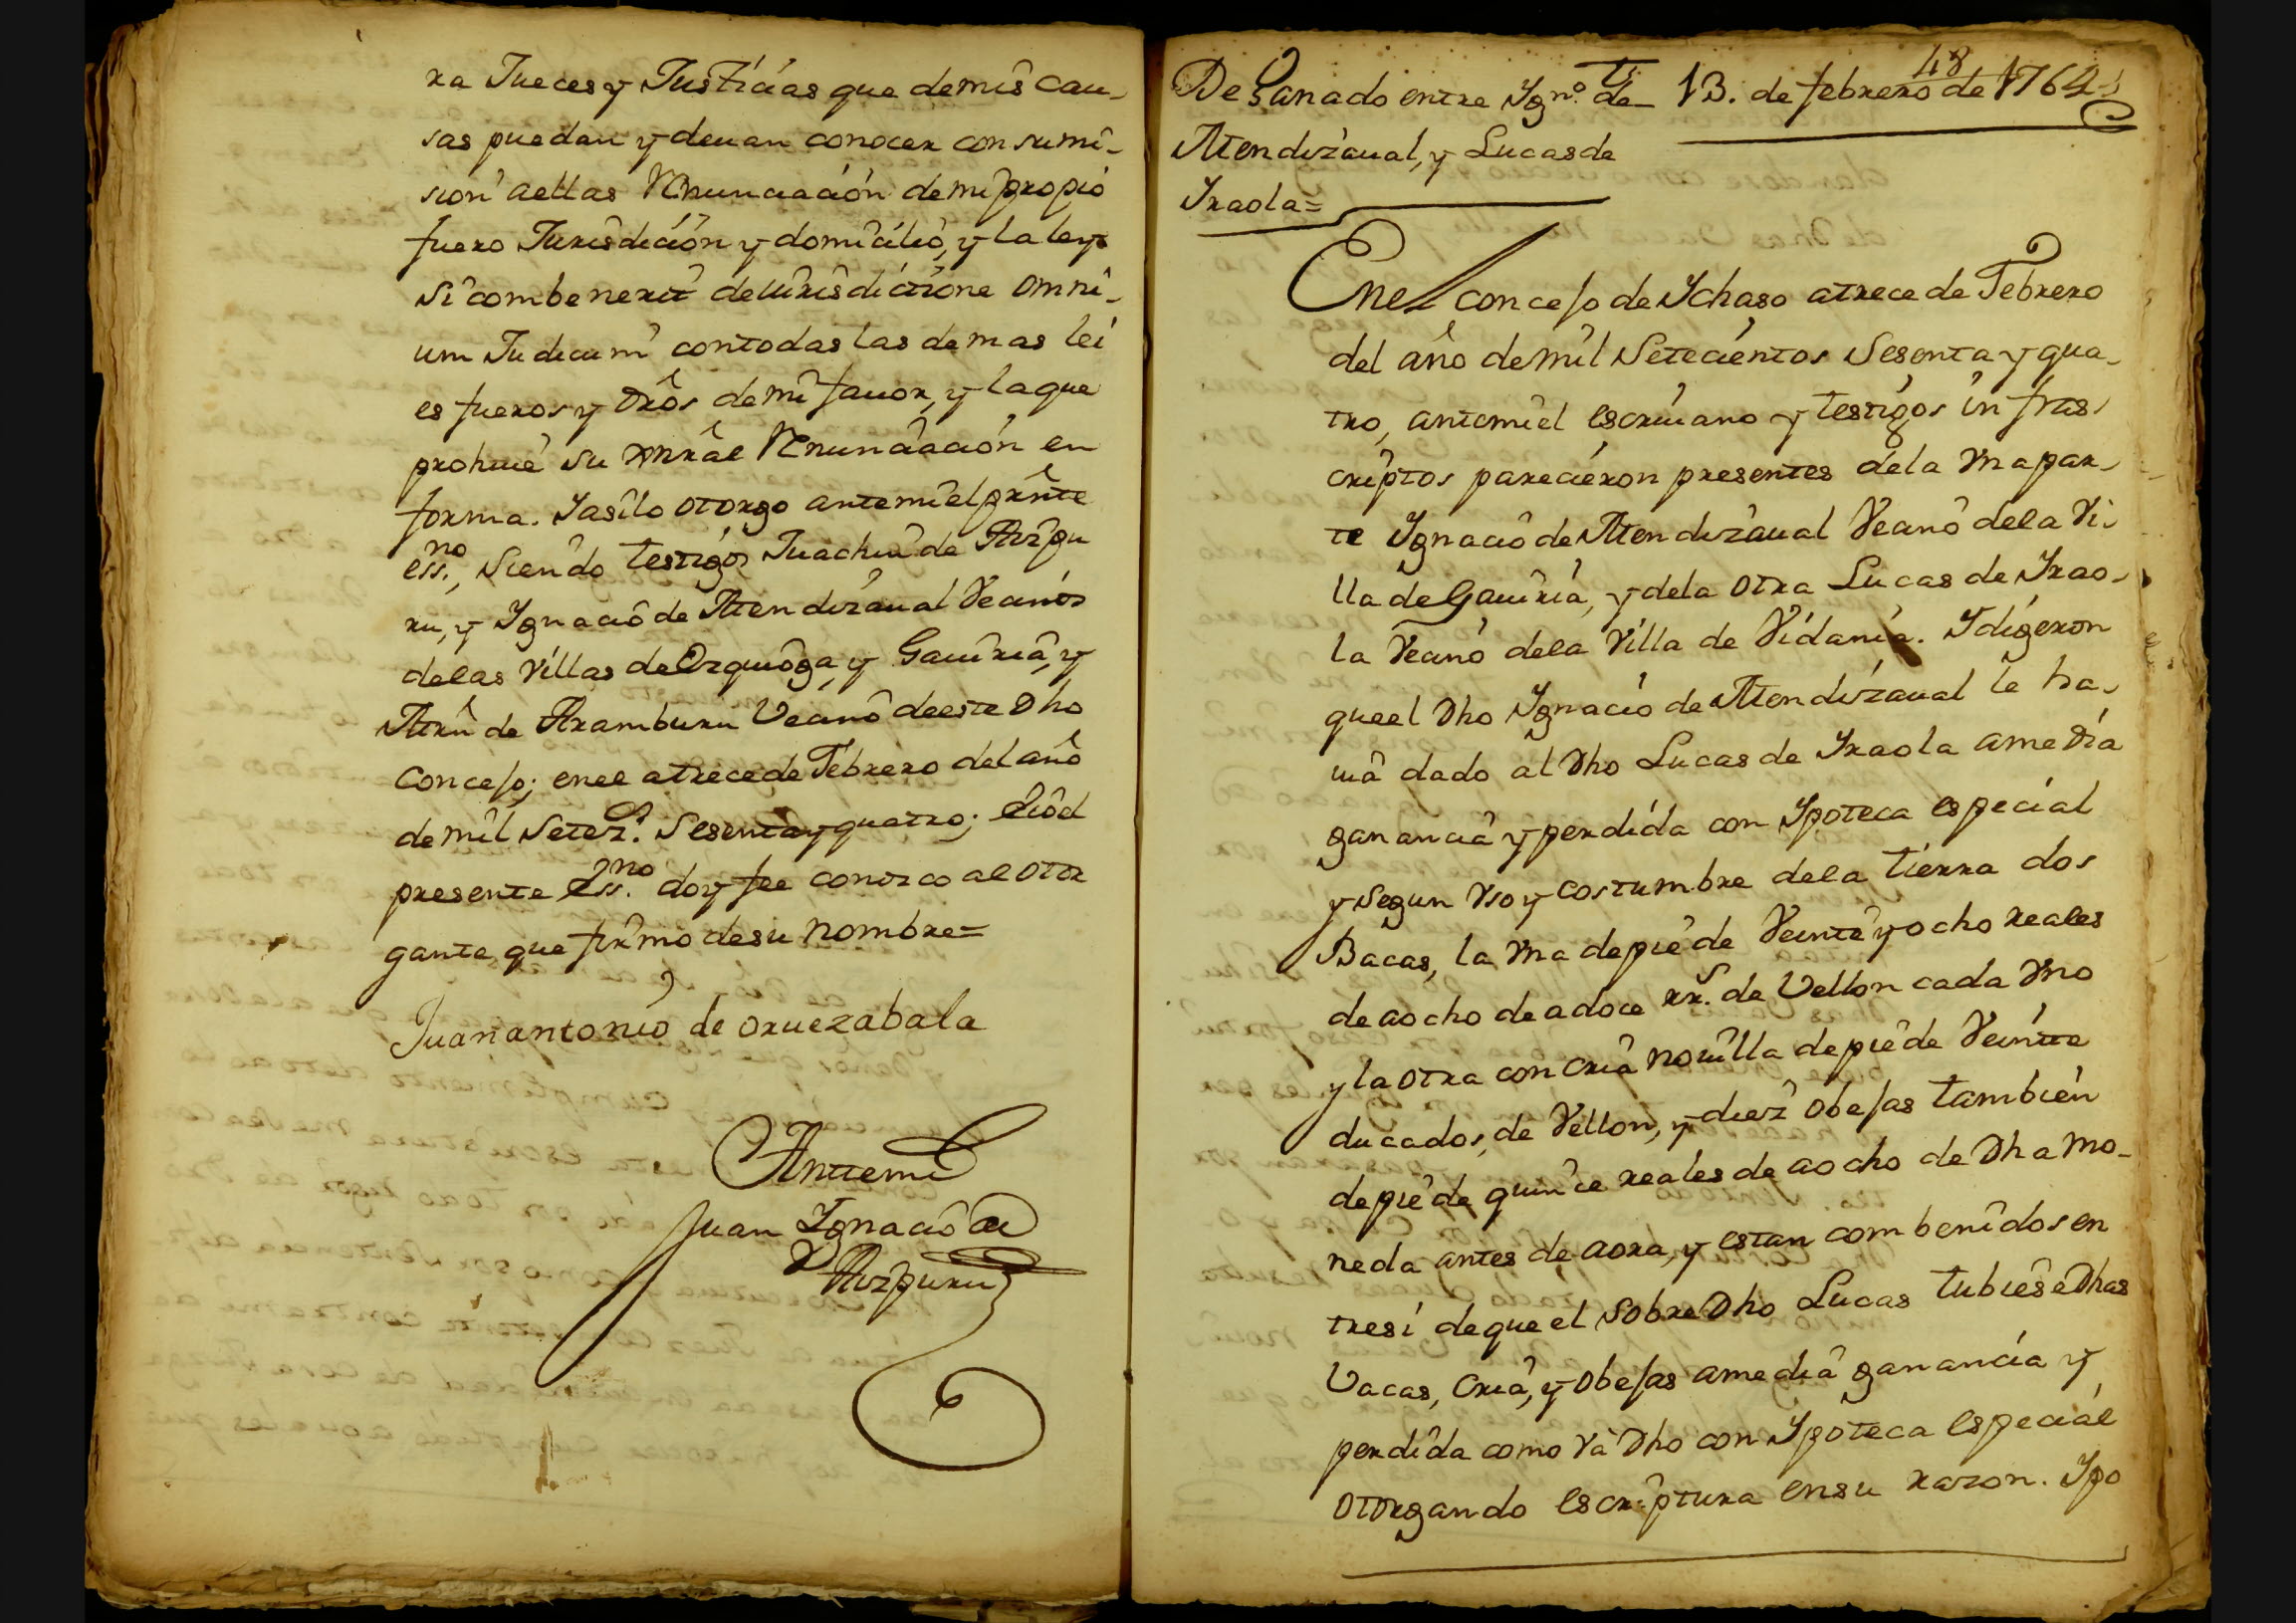 ra Jueces y Justicias que de mis cau-
sas puedan y deuan conocer con sumi-
sion aellas Renunciación de mi propio
fuero Jurisdición y domicilio, y la ley
Si combenerit de Iurisdictione omni-
um Judicum contodas las demas lei
es fueros y dros de mi fauor, y la que
prohiue su gnral Renunciación en
forma. Y asilo otorgo ante mi el prnte
ess.no, siendo testigos Juachin de Aizpu
ru, y Ignacio de Atendizaual Vecinos
delas villas de Ezquioga, y Gauiria, y
Atrn de Aramburu Vecino de este dho
Concejo; en el a trece de Febrero del año
de mil Setez.s Sesenta y quatro; E io el
presente Ess.no doy fee conozco al otor
gante, que firmo de su nombre=
Juan antonio de oruezabala
Antemi
Juan Ignacio de
Aizpuru
48
De Ganado entre Ign.o de 13. de febrero de 1764
Atendizaual, y Lucas de
Yraola=
En el concejo de Ychaso atrece de Febrero
del año de mil Setecientos Sesenta y qua-
tro, antemi el escriuano y testigos infras
criptos parecieron presentes dela vna par-
te Ygnacio de Atendizaual Vecino dela Vi-
lla de Gauiria, y dela otra Lucas de Yrao-
la Vecino dela Villa de Vidania. Y digeron
que el dho Ygnacio de Atendizaual le ha-
uia dado al dho Lucas de Yraola a media
ganancia y perdida con Ypoteca especial
y segun vso y costumbre dela tierra dos
Bacas, la vna de pie de Veinte y ocho reales
de aocho de adoce rr.s de Vellon cada vno
y la otra con cria nouilla de pie de Veinte
ducados, de Vellon, y diez obejas tambien
de pie de quince reales de aocho de dha mo-
neda antes de aora, y estan combenidos en
tresi de que el sobredho Lucas tubiese dhas
Vacas, cria, y obejas a media ganancia y
perdida como va dho con Ypoteca especial
otorgando escriptura en su razon. Ypo